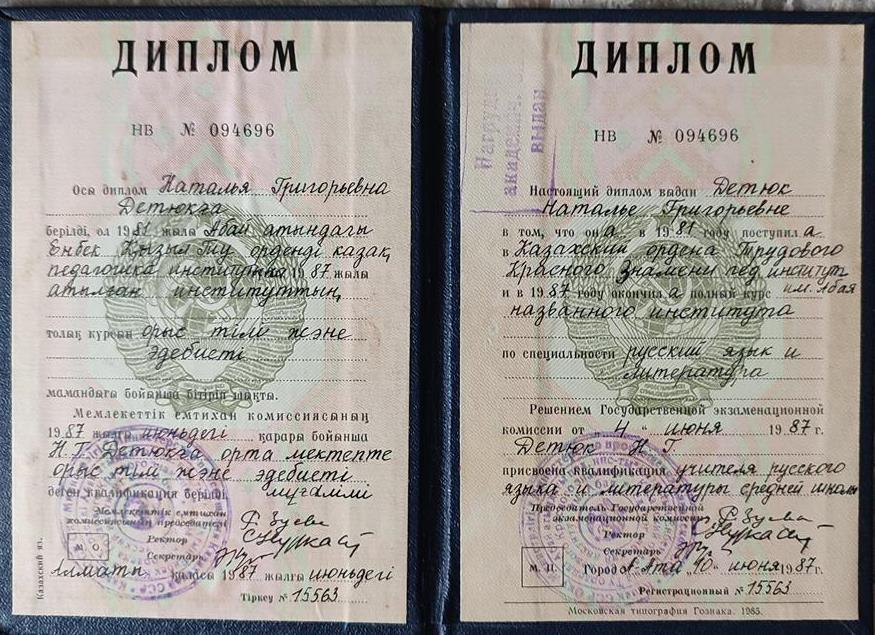 ДИПЛОМ
НВ № 094696
Осы диплом Наталья Григорьевна
Детюкга
берілді, ол 1981 жылы Абай атындағы
Еңбек Қызыл Ту орденді қазақ
педагогика институтына 1987 жылы
аталған институттың
толық курсын орыс тілі және
әдебиеті
мамандығы бойынша бітіріп шықты.
Мемлекеттік емтихан комиссиясының
1987 жылғы июньдегі қарары бойынша
Н.Г. Детюкга орта мектепте
орыс тілі және әдебиеті
деген квалификация берілді мұғалімі
Мемлекеттік емтихан
комиссиясының председателі Г. Зуева
Ректор
Секретарь
М. О.
Алматы қаласы 1987 жылғы июньдегі
Тіркеу № 15563
Казахский яз.
ДИПЛОМ
НВ № 094696
Нагрудный
академич.
выдан
Настоящий диплом выдан Детюк
Наталье Григорьевне
в том, что она в 1981 году поступила
в Казахский ордена Трудового
Красного Знамени пед институт
им. Абая
и в 1987 году окончила полный курс
названного института
по специальности русский язык и
литература
Решением Государственной экзаменационной
комиссии от „4“ июня 1987 г.
Детюк Н. Г.
присвоена квалификация учителя русского
языка и литературы средней школы
Председатель Государственной
экзаменационной комиссии Г. Зуева
Ректор
Секретарь
М. П.
Город А-Ата „10“ июня 1987 г.
Регистрационный № 15563
Московская типография Гознака. 1985.